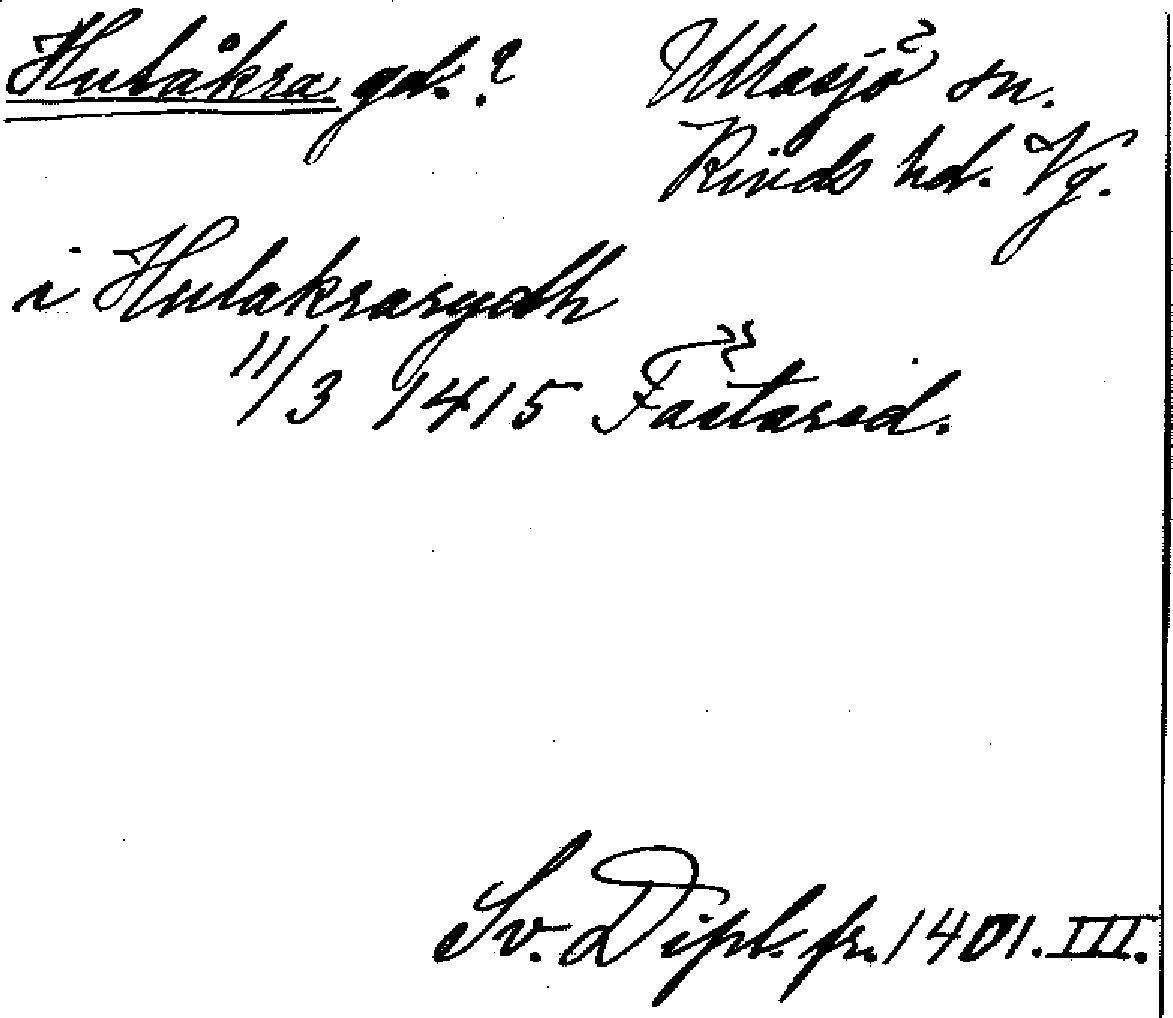 Hulåkra gd.? Ullasjö sn.
Kinds hd. Vg.
i Hulakrarydh
11/3 1415 Fästared.
Sv. Dipl. fr. 1401. III.